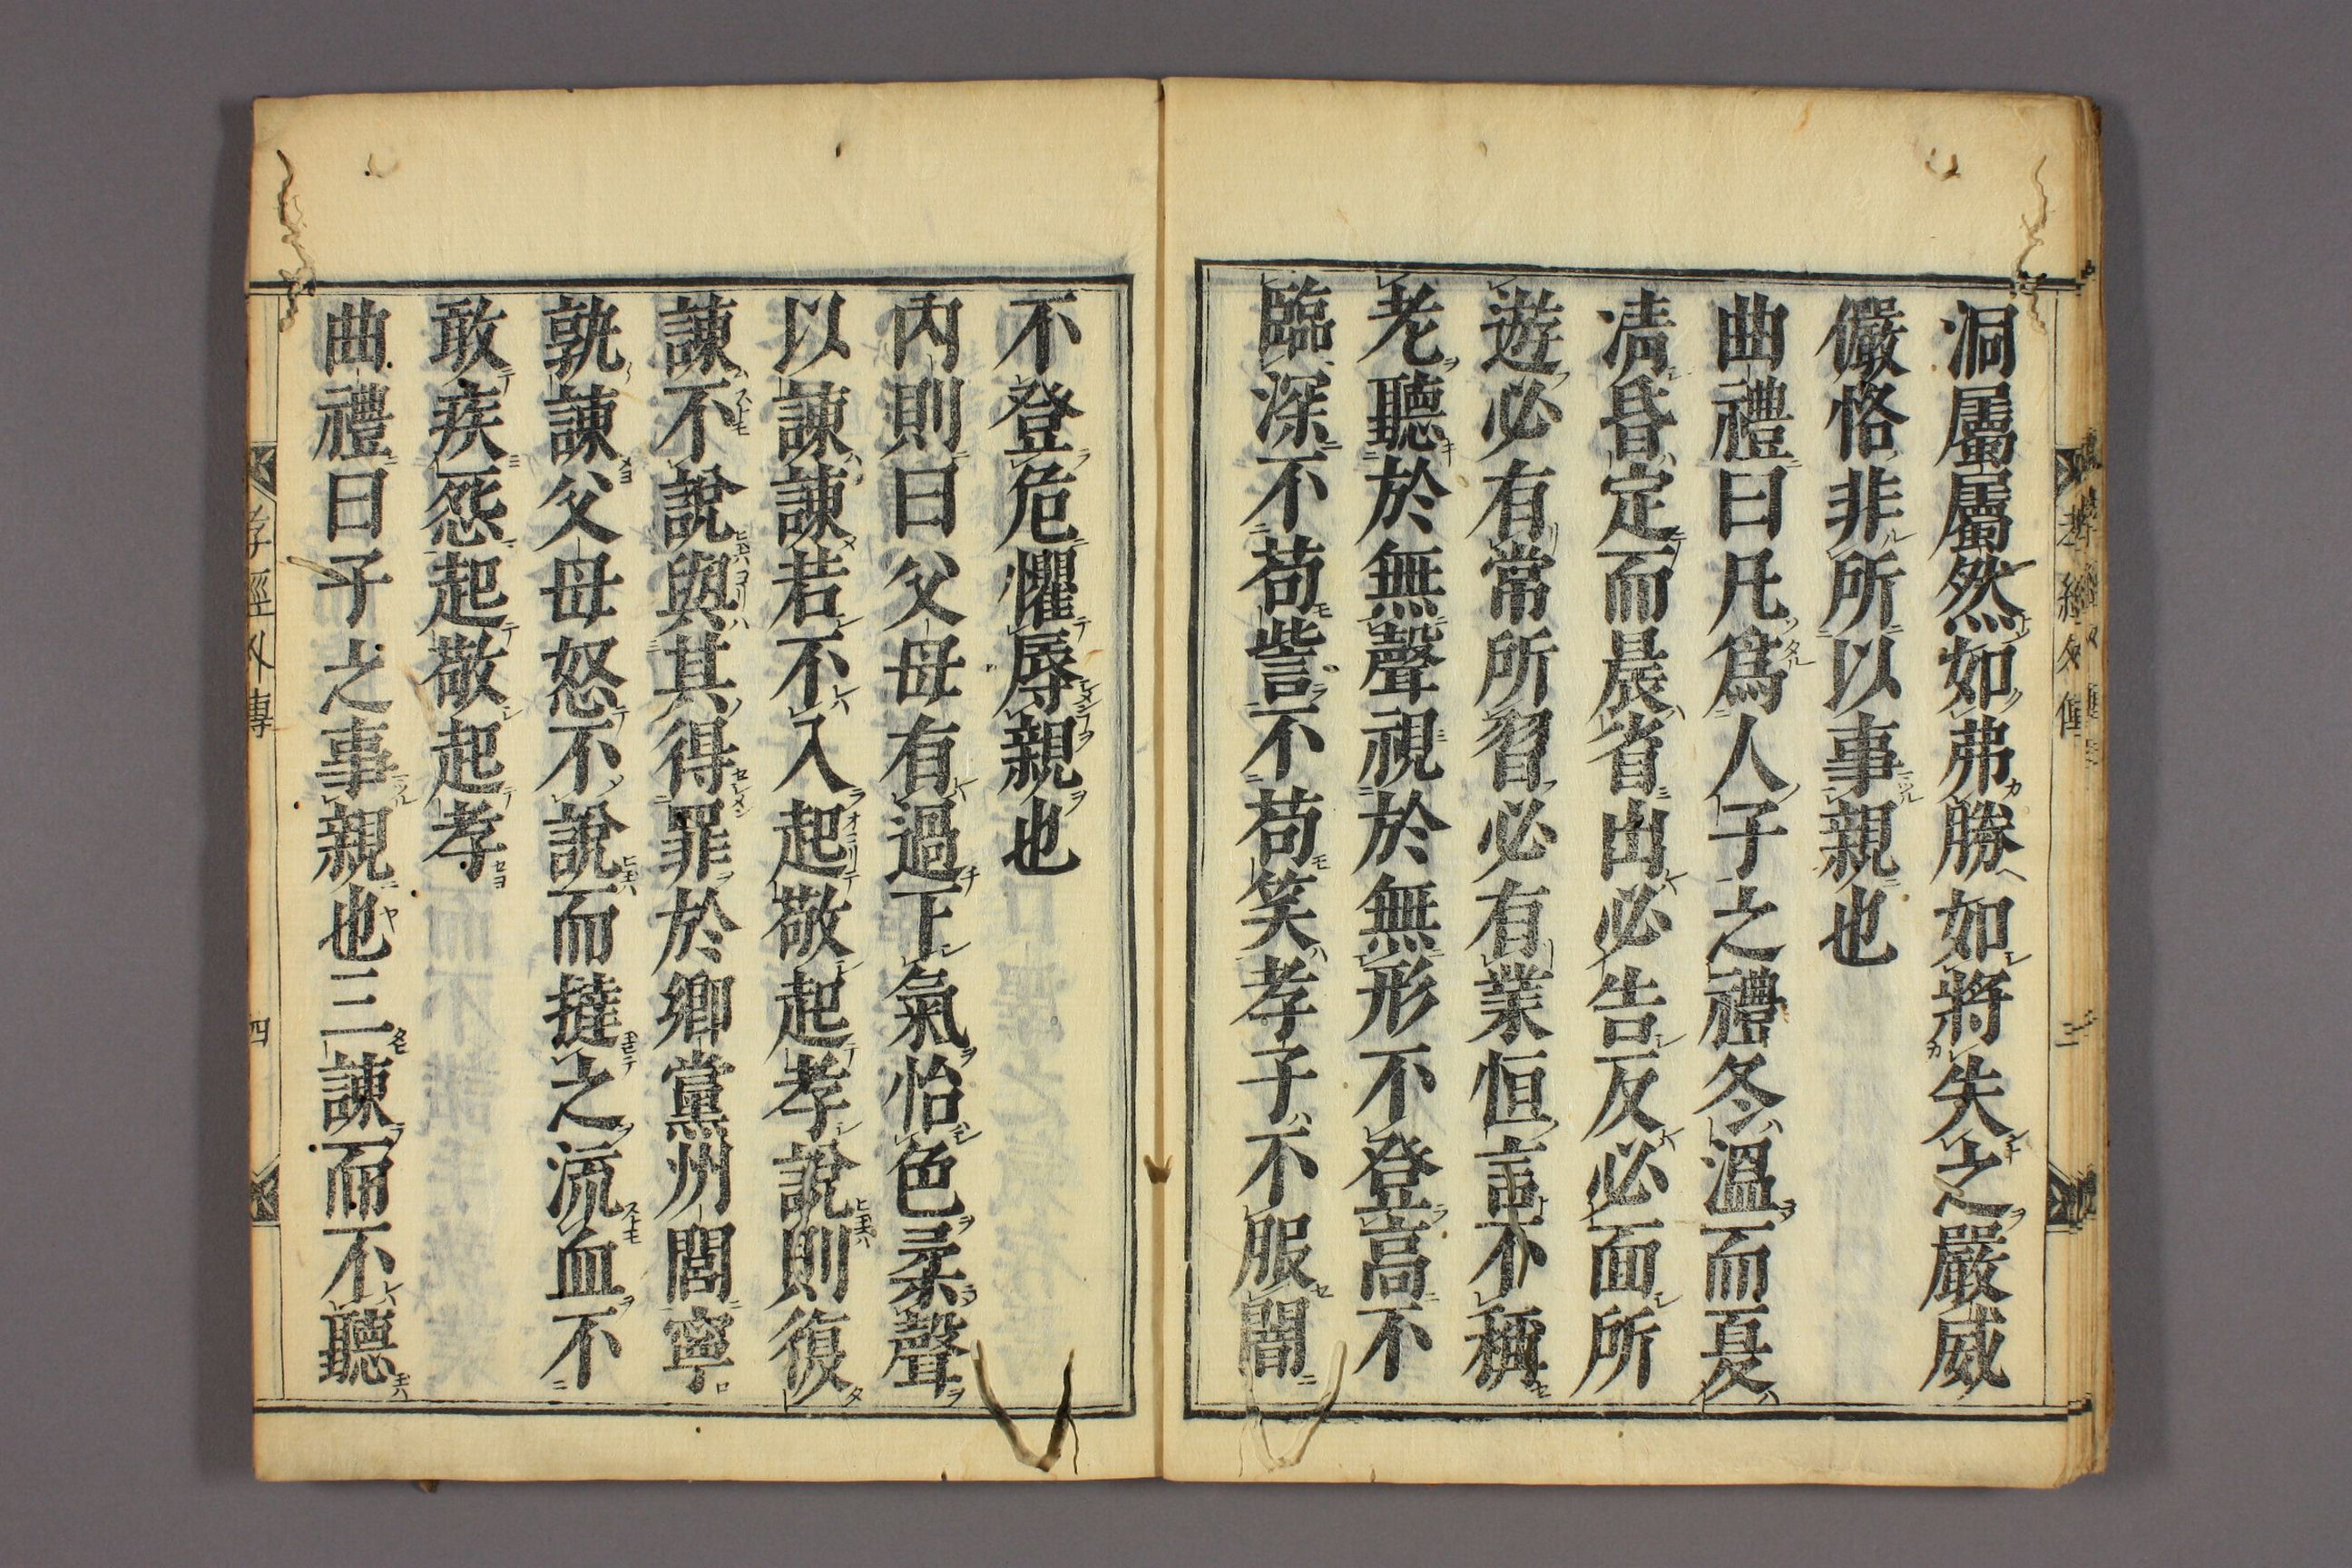 洞屬屬然如弗勝如將失之嚴威
儼恪非所以事親也
曲禮曰凡爲人子之禮冬溫而夏
凊昏定而晨省出必告反必面所
遊必有常所習必有業恒言不稱
老聽於無聲視於無形不登高不
臨深不苟訾不苟笑孝子不服闇
不登危懼辱親也
內則曰父母有過下氣怡色柔聲
以諫諫若不入起敬起孝說則復
諫不說與其得罪於鄉黨州閭寧
孰諫父母怒不說而撻之流血不
敢疾怨起敬起孝
曲禮曰子之事親也三諫而不聽
孝經外傳
四